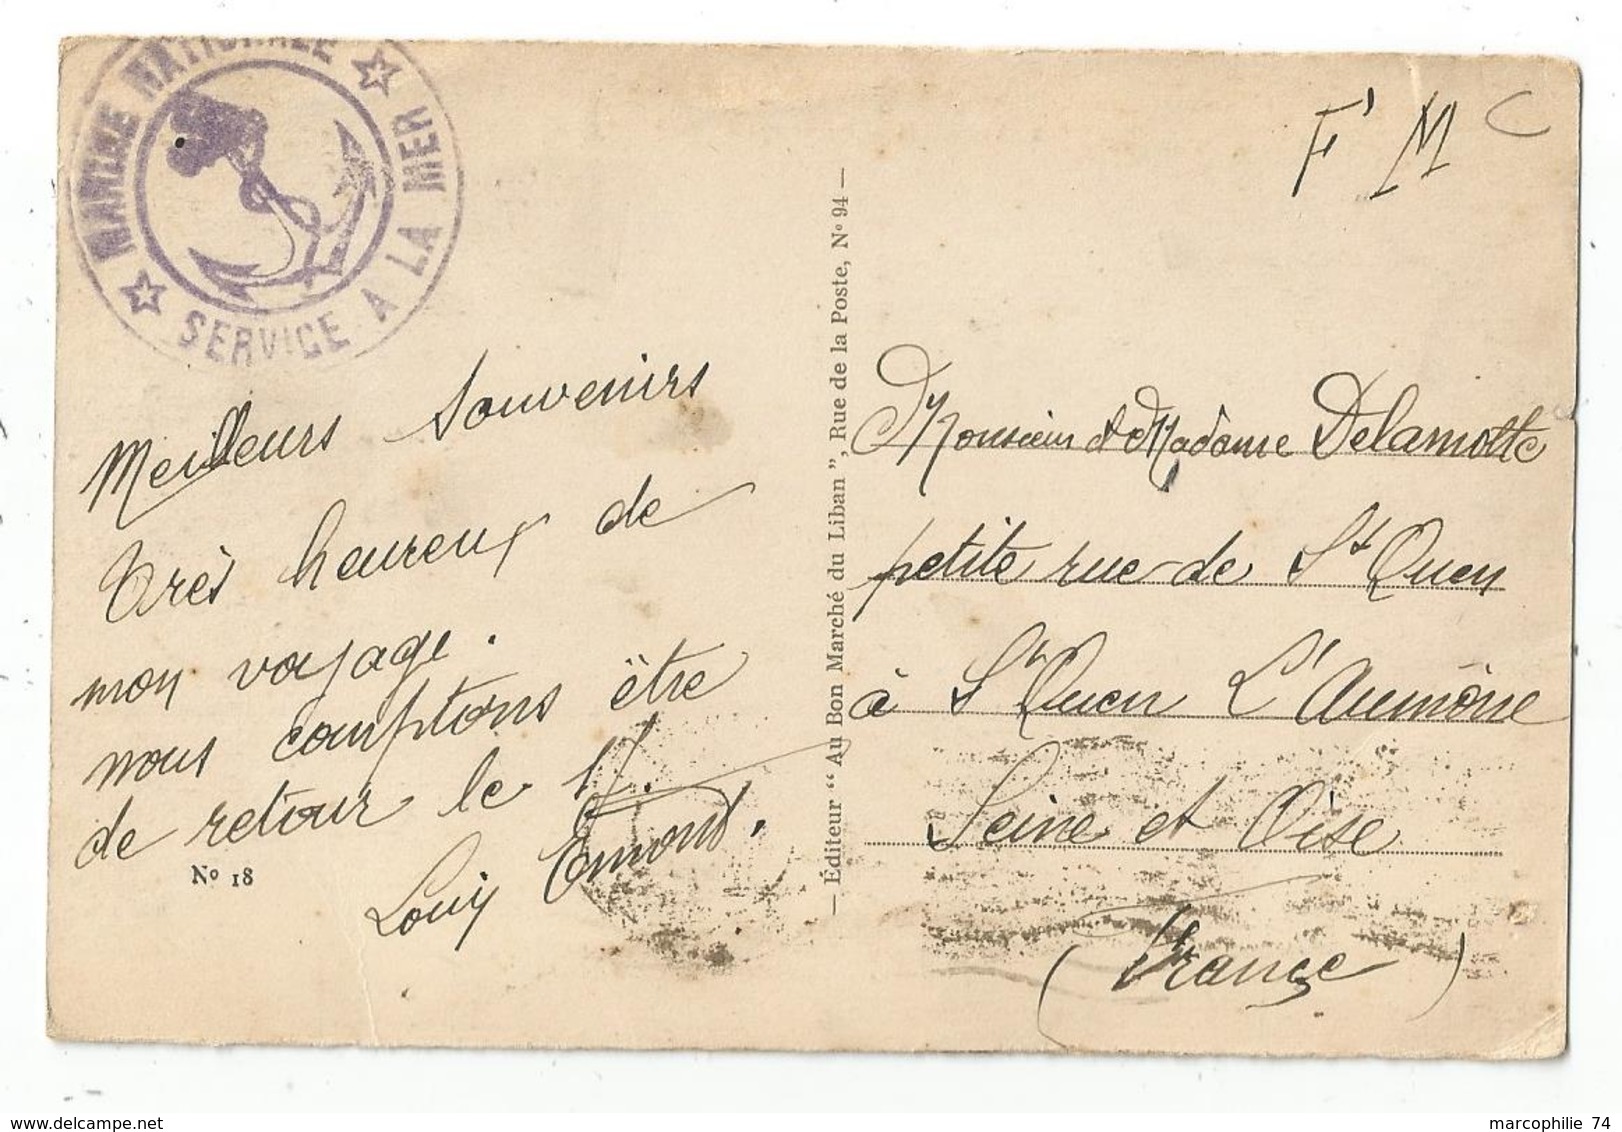 MARINE NATIONALE
SERVICE A LA MER
F M
Meilleurs Souvenirs
très heureux de
mon voyage.
nous comptons être
de retour le 17.
Louis Emond.
Nº 18
— Éditeur “Au Bon Marché du Liban”, Rue de la Poste, Nº 94 —
Monsieur et Madame Delamotte
petite rue de St Ouen
à St Ouen L'Aumône
Seine et Oise
(France)
marcophilie 74